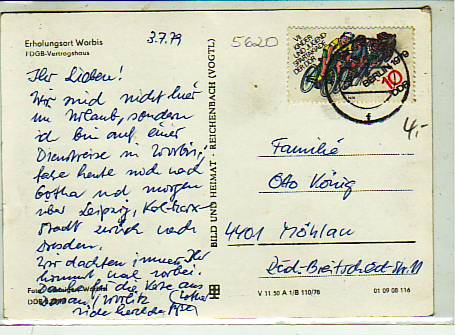 Erholungsort Worbis
FDGB-Vertragshaus
3.7.79
5620
VII. KINDER
UND JUGEND
SPARTAKIADE
DER DDR
10
BERLIN 1979
DDR
f
4,-
Ihr Lieben!
Wir sind nicht hier
im Urlaub, sondern
ich bin auf einer
Dienstreise in Worbis,
fahre heute noch nach
Gotha und morgen
über Leipzig, Karl-Marx-
Stadt zurück nach
Dresden.
Wir dachten immer, Ihr
kommt mal vorbei.
Danke für die Karte aus
Wörlitz
BILD UND HEIMAT · REICHENBACH (VOGTL)
Familie
Otto König
4401 Möhlau
Rud.-Breitscheid-Str. 11
V 11 50 A 1/B 110/78
01 09 08 116